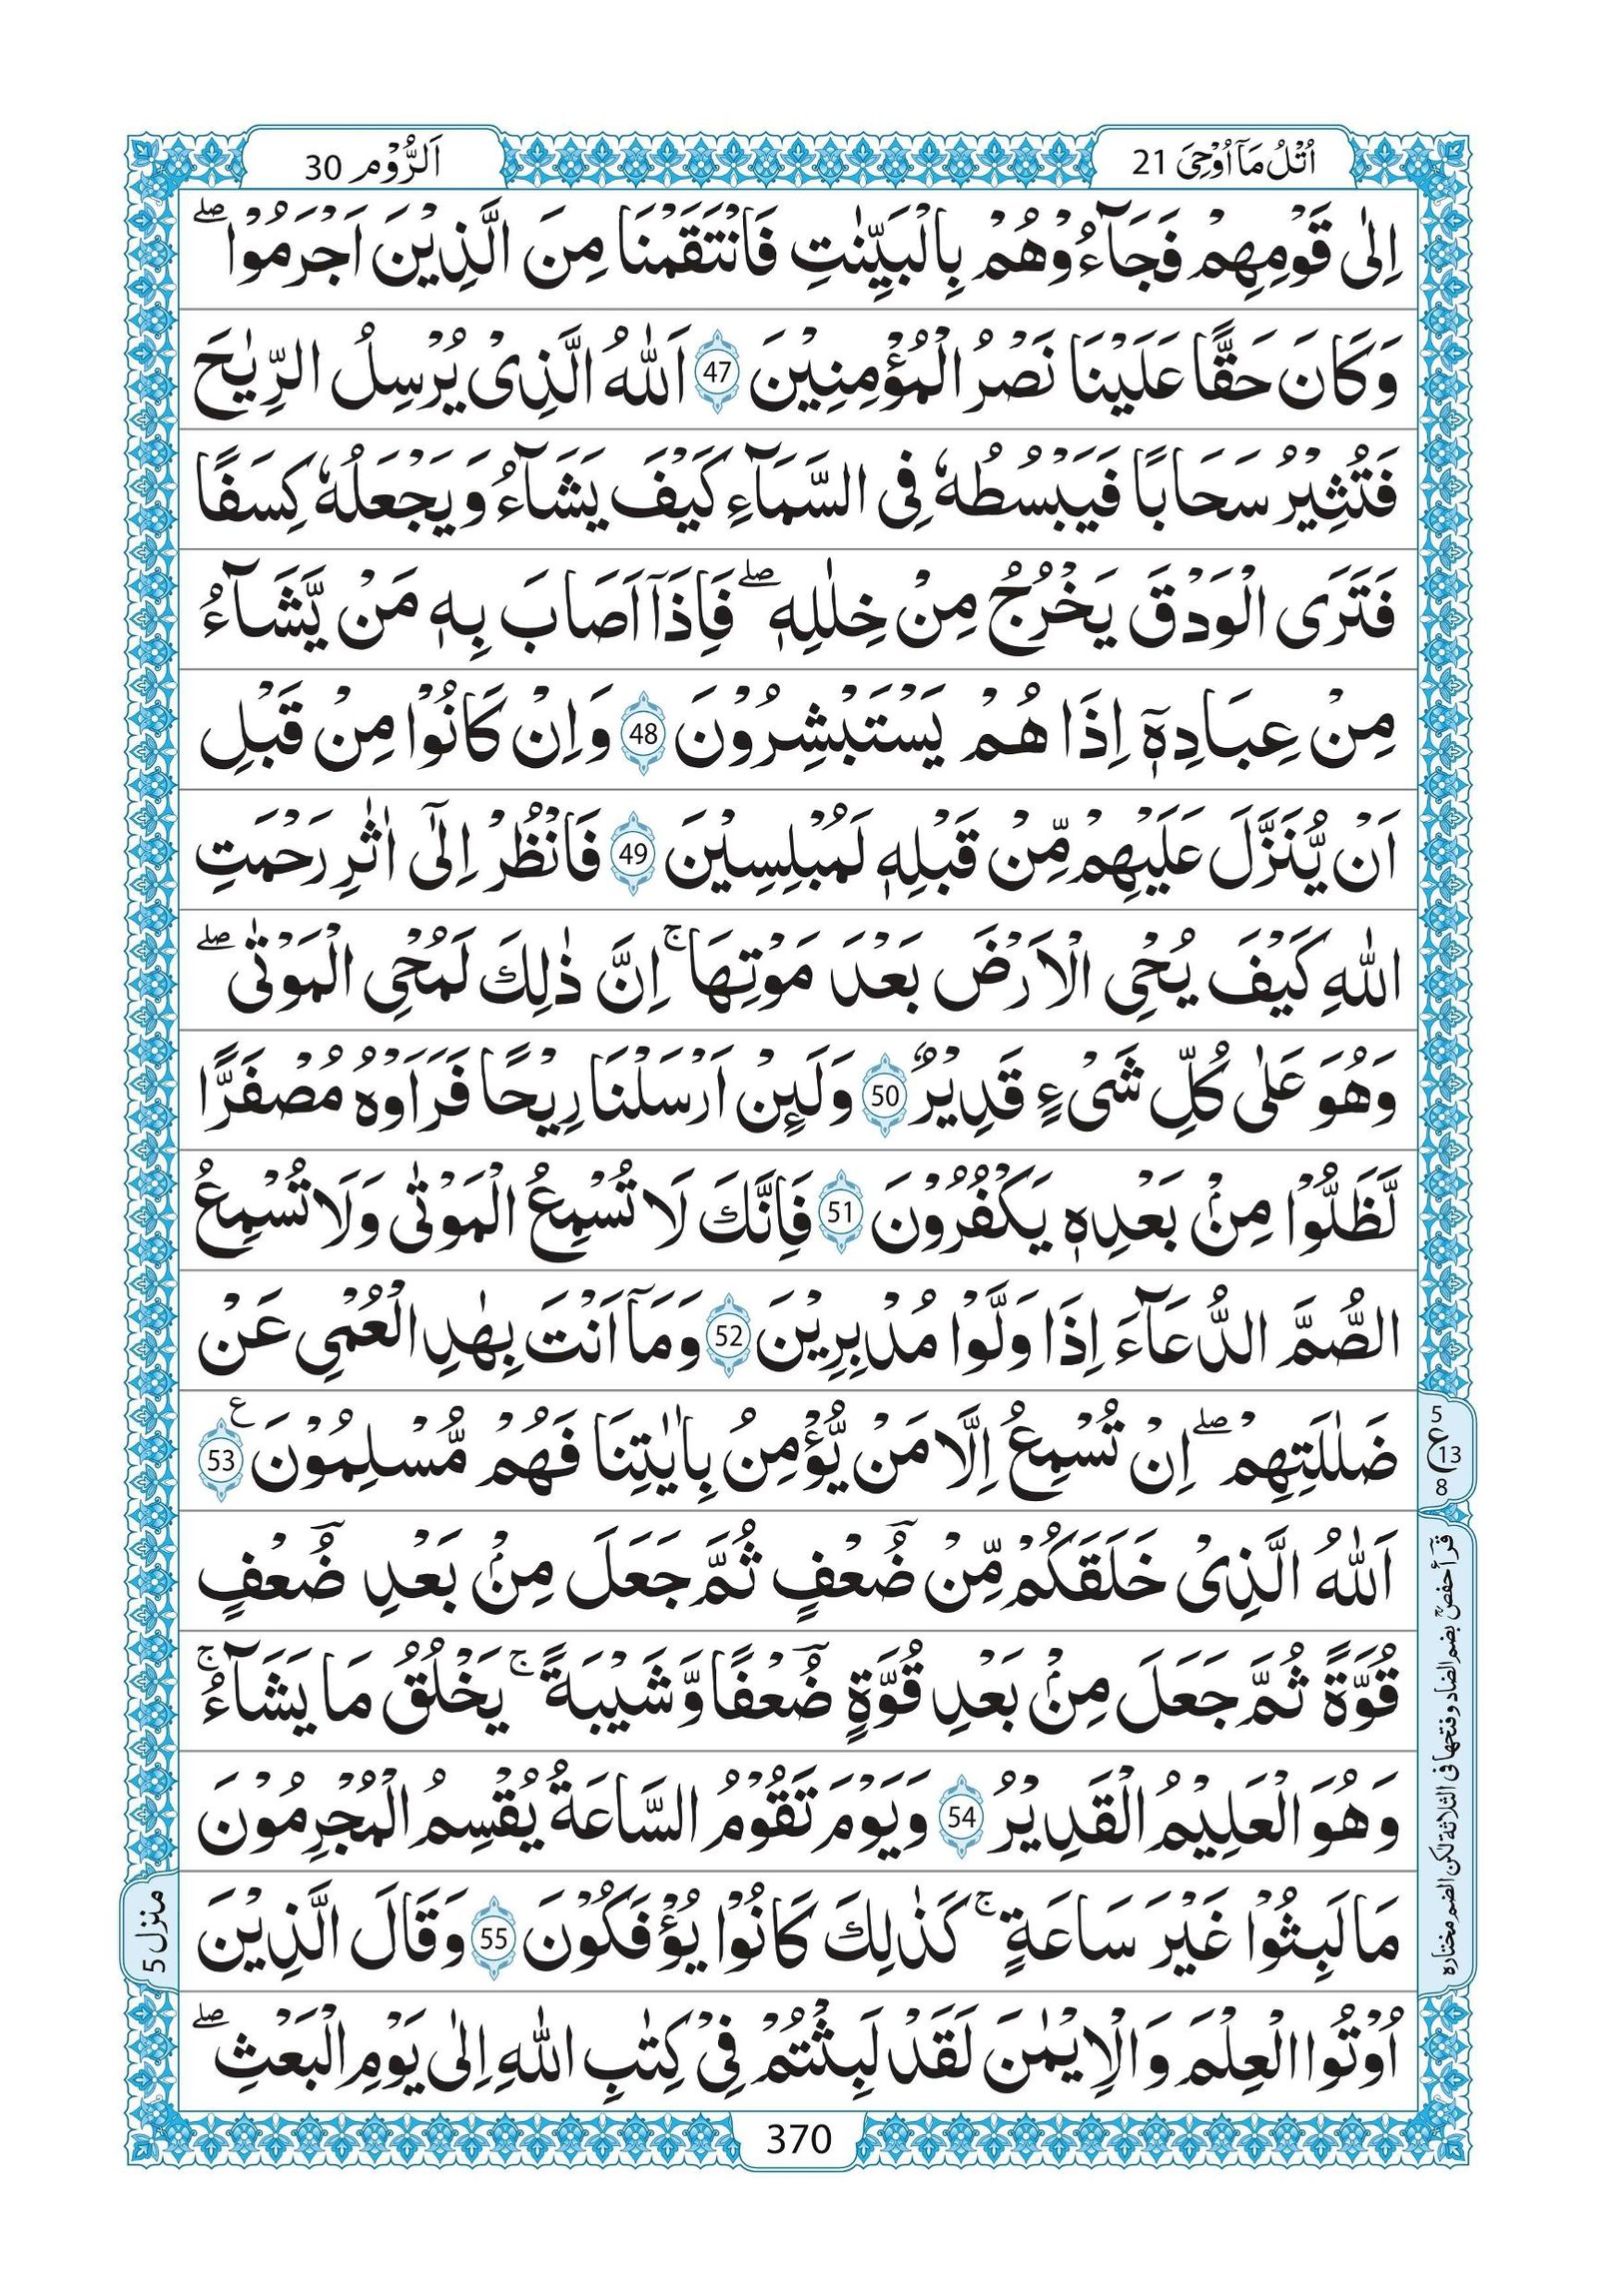 اُتْلُ مَاۤ اُوْحِیَ 21
اَلرُّوْم 30
اِلٰى قَوْمِهِمْ فَجَآءُوْهُمْ بِالْبَيِّنٰتِ فَانْتَقَمْنَا مِنَ الَّذِيْنَ اَجْرَمُوْا ۖ
وَكَانَ حَقًّا عَلَيْنَا نَصْرُ الْمُؤْمِنِيْنَ 47 اَللّٰهُ الَّذِىْ يُرْسِلُ الرِّيٰحَ
فَتُثِيْرُ سَحَابًا فَيَبْسُطُهٗ فِى السَّمَآءِ كَيْفَ يَشَآءُ وَيَجْعَلُهٗ كِسَفًا
فَتَرَى الْوَدْقَ يَخْرُجُ مِنْ خِلٰلِهٖ ۖ فَاِذَاۤ اَصَابَ بِهٖ مَنْ يَّشَآءُ
مِنْ عِبَادِهٖۤ اِذَا هُمْ يَسْتَبْشِرُوْنَ 48 وَاِنْ كَانُوْا مِنْ قَبْلِ
اَنْ يُّنَزَّلَ عَلَيْهِمْ مِّنْ قَبْلِهٖ لَمُبْلِسِيْنَ 49 فَانْظُرْ اِلٰٓى اٰثٰرِ رَحْمَتِ
اللّٰهِ كَيْفَ يُحْىِ الْاَرْضَ بَعْدَ مَوْتِهَا ۚ اِنَّ ذٰلِكَ لَمُحْىِ الْمَوْتٰى ۖ
وَهُوَ عَلٰى كُلِّ شَىْءٍ قَدِيْرٌ 50 وَلَئِنْ اَرْسَلْنَا رِيْحًا فَرَاَوْهُ مُصْفَرًّا
لَّظَلُّوْا مِنْۢ بَعْدِهٖ يَكْفُرُوْنَ 51 فَاِنَّكَ لَا تُسْمِعُ الْمَوْتٰى وَلَا تُسْمِعُ
الصُّمَّ الدُّعَآءَ اِذَا وَلَّوْا مُدْبِرِيْنَ 52 وَمَاۤ اَنْتَ بِهٰدِ الْعُمْىِ عَنْ
ضَلٰلَتِهِمْ ۖ اِنْ تُسْمِعُ اِلَّا مَنْ يُّؤْمِنُ بِاٰيٰتِنَا فَهُمْ مُّسْلِمُوْنَ ع 53
اَللّٰهُ الَّذِىْ خَلَقَكُمْ مِّنْ ضُؔعْفٍ ثُمَّ جَعَلَ مِنْۢ بَعْدِ ضُؔعْفٍ
قُوَّةً ثُمَّ جَعَلَ مِنْۢ بَعْدِ قُوَّةٍ ضُؔعْفًا وَّشَيْبَةً ۚ يَخْلُقُ مَا يَشَآءُ ۚ
وَهُوَ الْعَلِيْمُ الْقَدِيْرُ 54 وَيَوْمَ تَقُوْمُ السَّاعَةُ يُقْسِمُ الْمُجْرِمُوْنَ
مَا لَبِثُوْا غَيْرَ سَاعَةٍ ۚ كَذٰلِكَ كَانُوْا يُؤْفَكُوْنَ 55 وَقَالَ الَّذِيْنَ
اُوْتُوا الْعِلْمَ وَالْاِيْمٰنَ لَقَدْ لَبِثْتُمْ فِىْ كِتٰبِ اللّٰهِ اِلٰى يَوْمِ الْبَعْثِ ۖ
5 ع 13 8
قرأ حفصؒ بضم الضاد وفتحها فی الثلاثة لکن الضم مختارہ
منزل 5
370